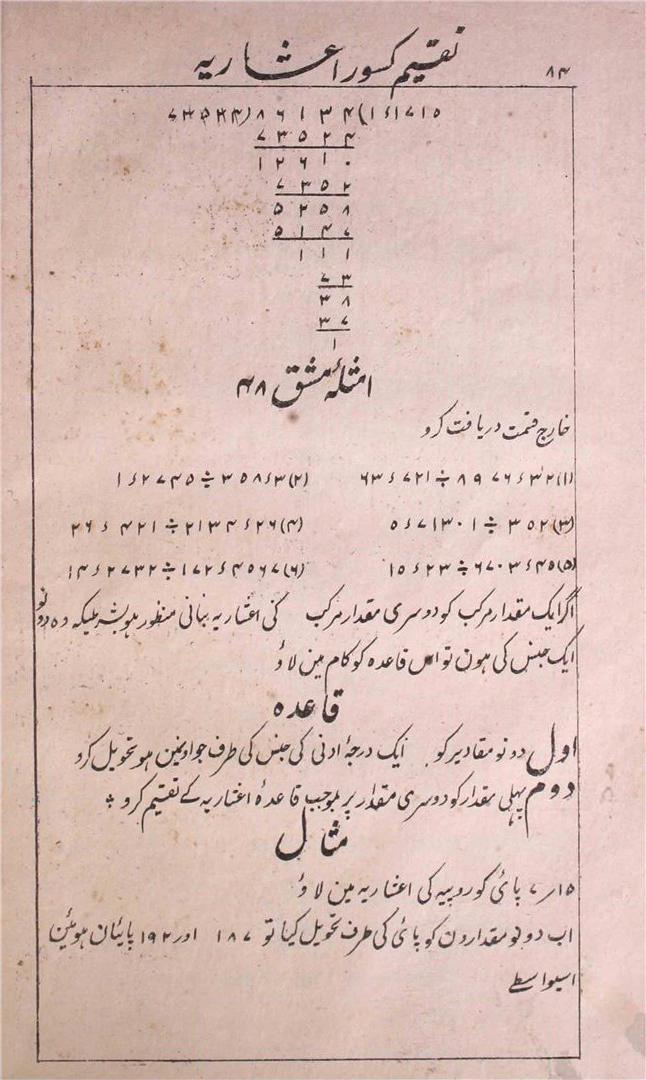 ۸۴
تقسیم کسور اعشاریہ
۷۳۵۲۴) ۸ ۶ ۱ ۳ ۴ (۱ء۱۷۱۵
۷ ۳ ۵ ۲ ۴
۱ ۲ ۶ ۱ ۰
۷ ۳ ۵ ۲
۵ ۲ ۵ ۸
۵ ۱ ۴ ۷
۱ ۱ ۱
۷ ۳
۳ ۸
۳ ۷
۱
امثلۂ مشق ۴۸
خارج قسمت دریافت کرو
(۱) ۳۲ء۷۶ ۹ ۸ ÷ ۷۲۱ء۶۳
(۲) ۳ء۳۵۸ ÷ ۲۷۴۵ء۱
(۳) ۳۵۲ ÷ ۷۱۳۰۱ء۵
(۴) ۲۶ء۲۱۳۴ ÷ ۴۲۱ء۲۶
(۵) ۴۵ء۶۷۰۳ ÷ ۲۳ء۱۵
(۶) ۴۵۶۷ء۱۷۲ ÷ ۲۷۳۲ء۱۴
اگر ایک مقدار مرکب کو دوسری مقدار مرکب کی اعشاریہ بنانی منظور ہو بشرطیکہ وہ دونو
ایک جنس کی ہون تو اس قاعدہ کو کام مین لاؤ
قاعدہ
اول دونو مقادیر کو ایک درجۂ ادنی کی جنس کی طرف جو اونمین ہو تحویل کرو
دوم پہلی مقدار کو دوسری مقدار پر بموجب قاعدۂ اعشاریہ کے تقسیم کرو ÷
مثال
۱۵؍ ۷ پائی کو روپیہ کی اعشاریہ مین لاؤ
اب دونو مقدارون کو پائی کی طرف تحویل کیا تو ۱۸۷ اور ۱۹۲ پائیان ہوئین
اسیواسطے